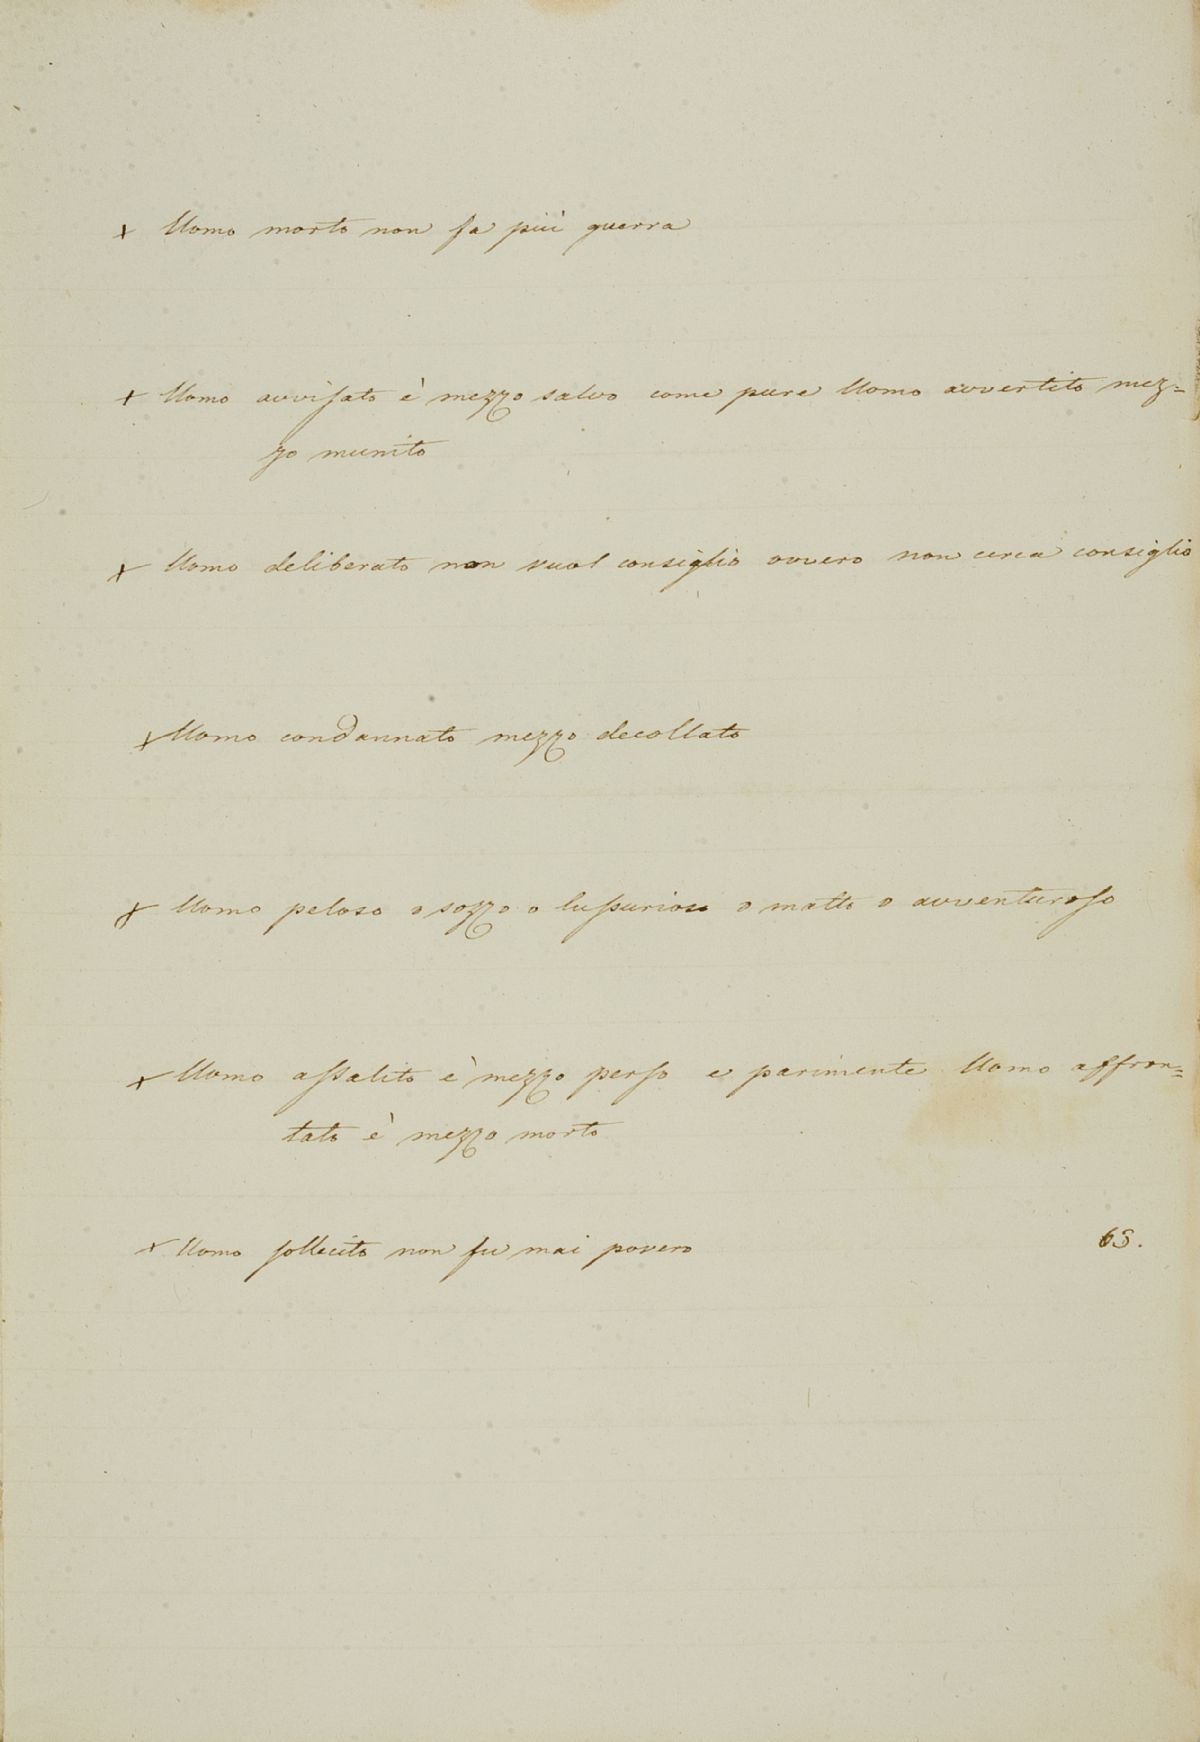 + Uomo morto non fa più guerra
+ Uomo avvisato è mezzo salvo come pure Uomo avvertito mez=
zo munito
+ Uomo deliberato non vuol consiglio ovvero non cerca consiglio
+ Uomo condannato mezzo decollato
+ Uomo peloso o sozzo o lussurioso o matto o avventuroso
+ Uomo assalito è mezzo perso e parimente Uomo affron=
tato è mezzo morto
+ Uomo sollecito non fu mai povero 63.